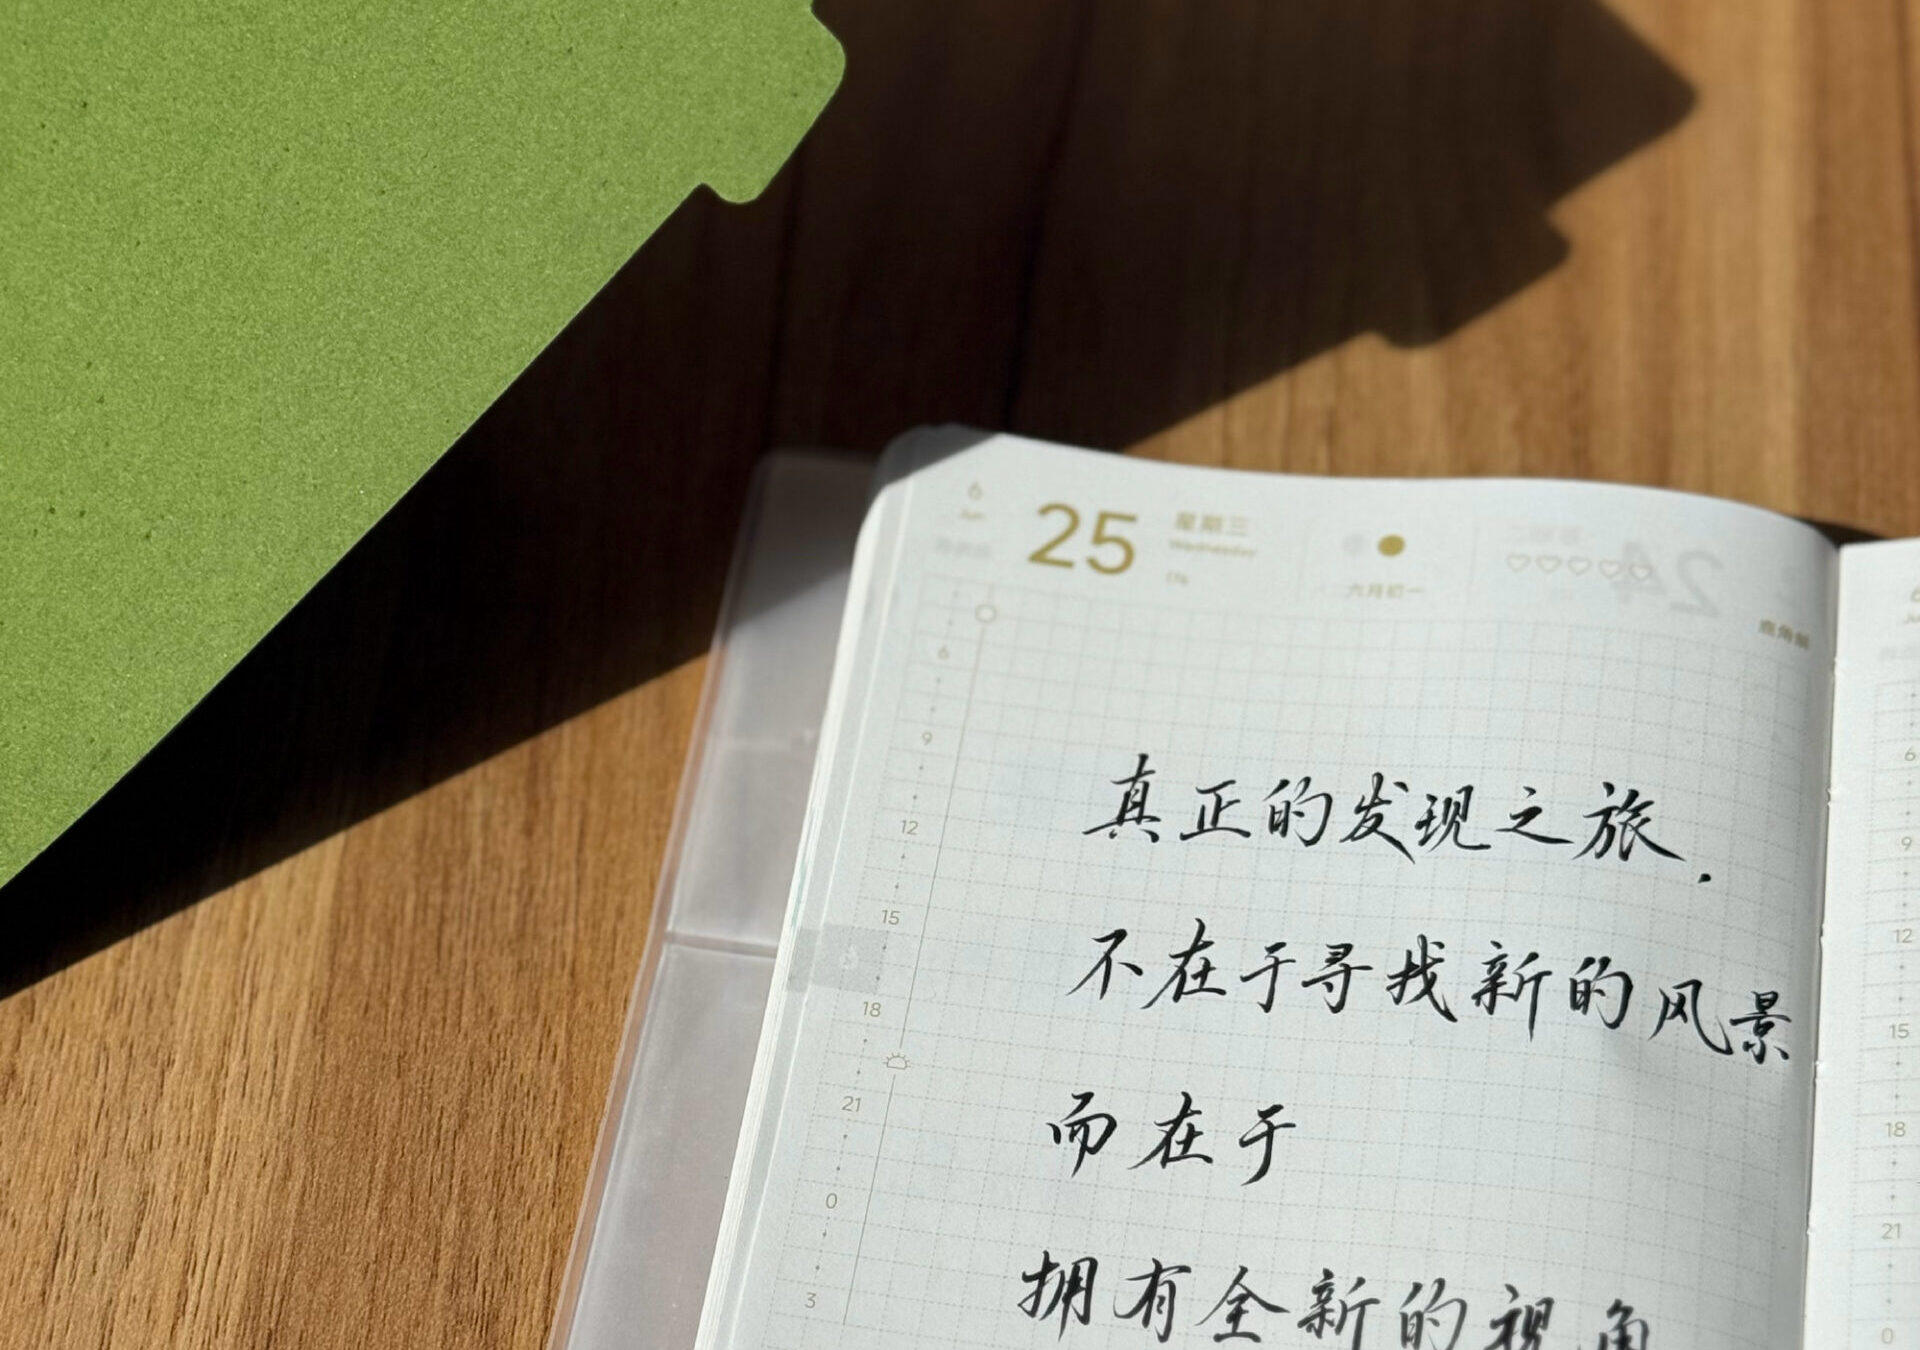 6
Jun
25
星期三
Wednesday
六月初一
6
9
12
15
18
21
0
3
真正的发现之旅.
不在于寻找新的风景
而在于
拥有全新的视角
6
9
12
15
18
21
0